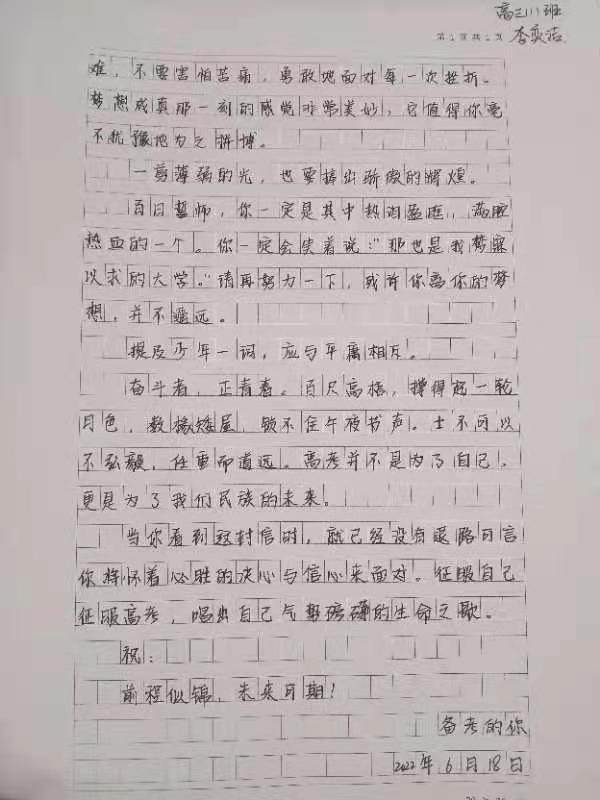 高三(1)班
第2页共2页 李奕洁
难，不要害怕苦痛，勇敢地面对每一次挫折。
梦想成真那一刻的感觉非常美妙，它值得你毫
不犹豫地为之拼搏。
一剪薄弱的光，也要捧出骄傲的辉煌。
百日誓师，你一定是其中热泪盈眶，满腔
热血的一个。你一定会笑着说：“那也是我梦寐
以求的大学。”请再努力一下，或许你离你的梦
想，并不遥远。
提及少年一词，应与平庸相互。
奋斗者，正青春。百尺高楼，撑得起一轮
月色，数椽矮屋，锁不住午夜书声。士不可以
不弘毅，任重而道远。高考并不是为了自己，
更是为了我们民族的未来。
当你看到这封信时，就已经没有退路可言
你将怀着必胜的决心与信心来面对。征服自己
征服高考，唱出自己气势磅礴的生命之歌。
祝：
前程似锦，未来可期！
备考的你
2022年6月18日